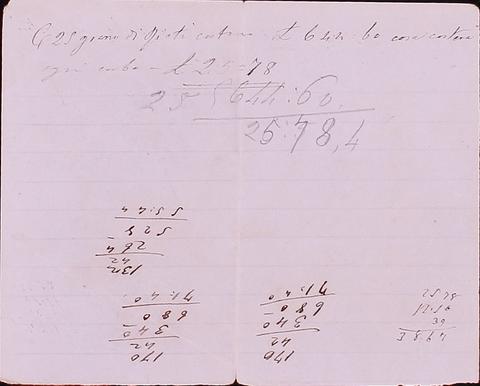 25 giorni di costano £ 644:60 cosa costera
ogni = £ 25=78
25 644:60
25:78,4
132
42
264
528
55:44
170
42
340
680
71:40
170
42
340
680
71:40
2578
39